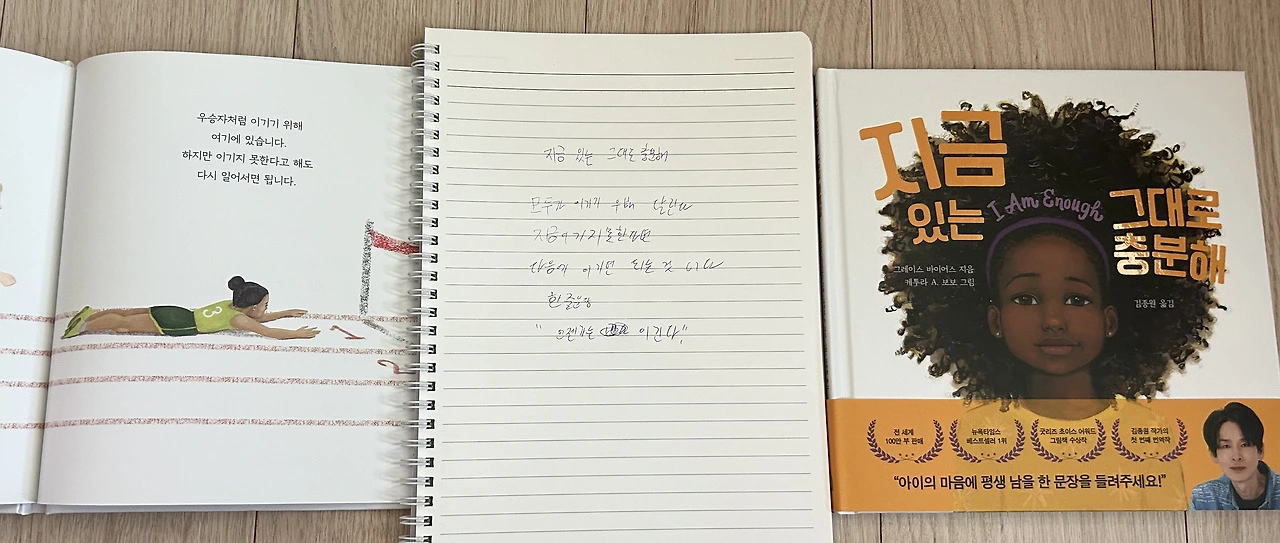 우승자처럼 이기기 위해
여기에 있습니다.
하지만 이기지 못한다고 해도
다시 일어서면 됩니다.
3
1
2
지금 있는 그대로 충분해
모두가 이기기 위해 달린다
다음에 이기면 되는 것 이다
한 줄문장
" 언젠가는 이긴다."
지금
있는
I Am Enough
그대로
충분해
그레이스 바이어스 지음
케투라 A. 보보 그림
김종원 옮김
전 세계
100만 부 판매
뉴욕타임스
베스트셀러 1위
굿리즈 초이스 어워드
그림책 수상작
김종원 작가의
첫 번째 번역작
“아이의 마음에 평생 남을 한 문장을 들려주세요!”